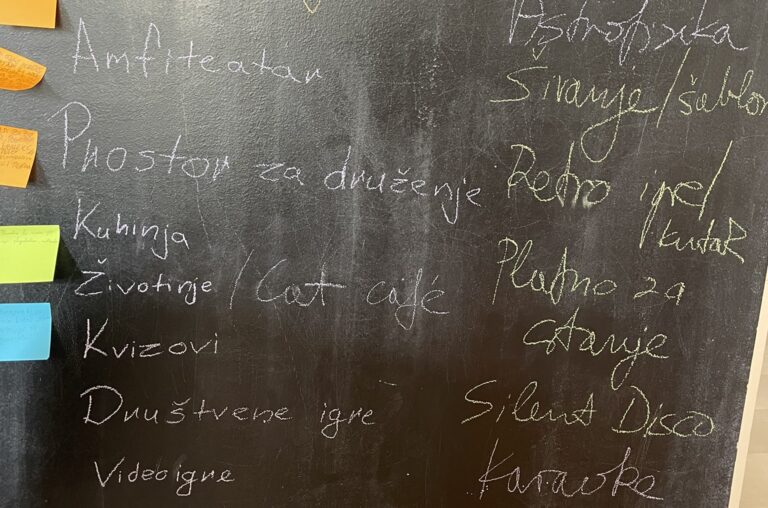 Amfiteatar
Prostor za druženje
Kuhinja
Životinje / Cat café
Kvizovi
Društvene igre
Videoigre
Astrofizika
Šivanje / šablon
Retro igre /
kutak
Platno za
crtanje
Silent Disco
Karaoke